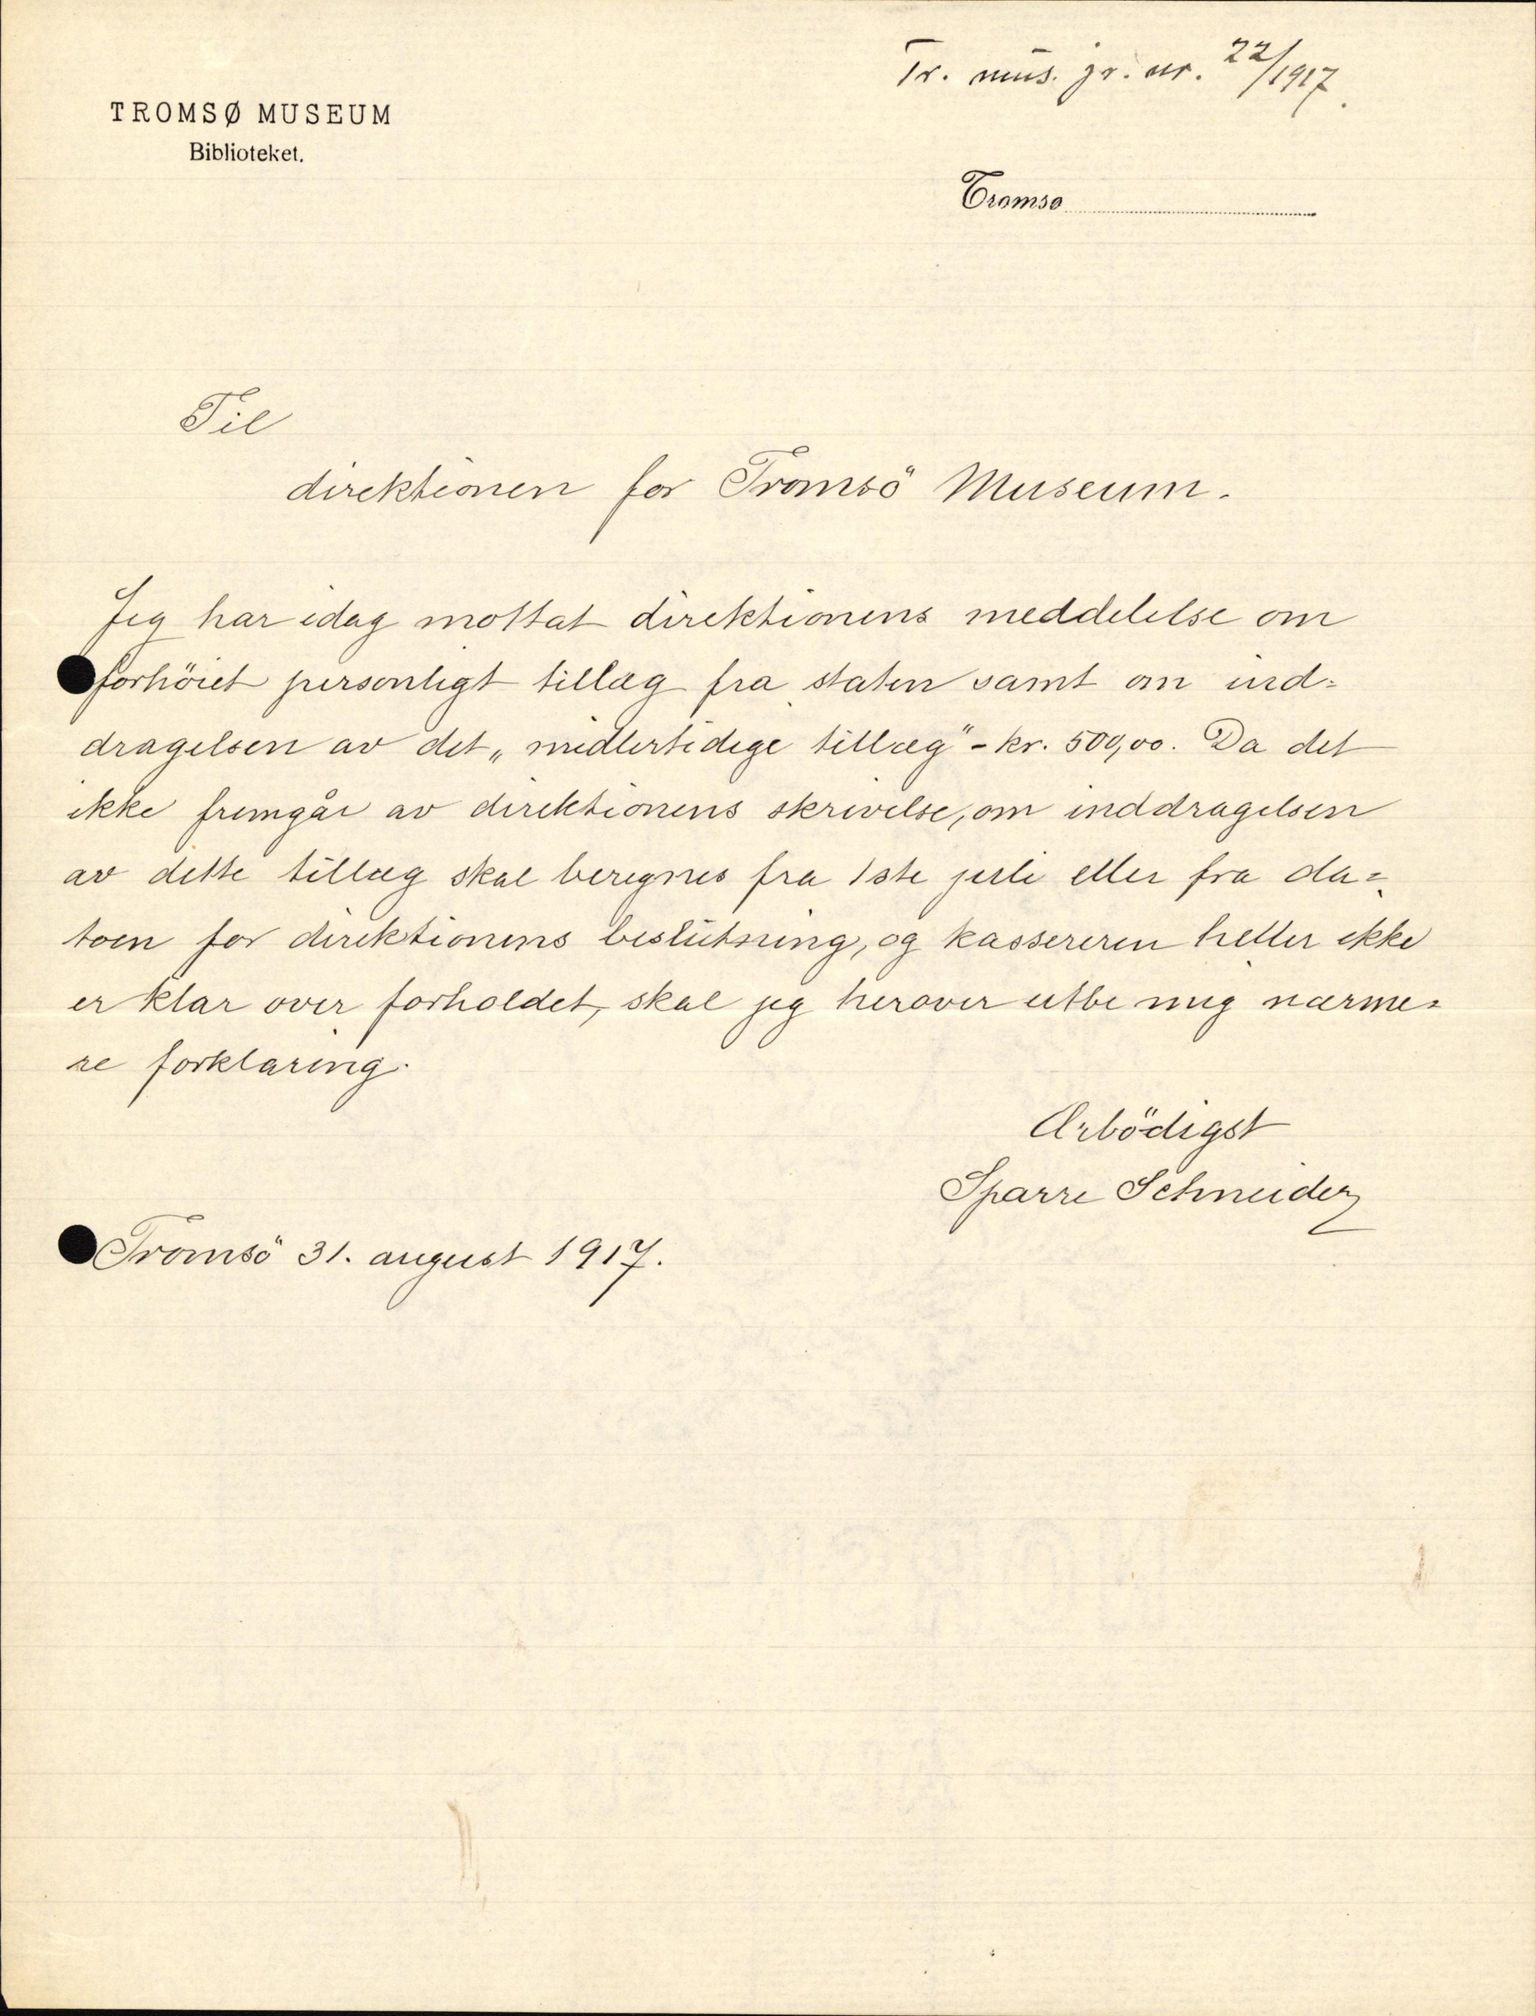 Tr. mus. jr. nr. 22/1917.
TROMSØ MUSEUM
Biblioteket.
Tromsø
Til
direktionen for Tromsö Museum.
Jeg har idag mottat direktionens meddelelse om
forhöiet personligt tillæg fra staten samt om ind=
dragelsen av det „midlertidige tillæg" - kr. 500,00. Da det
ikke fremgår av direktionens skrivelse, om inddragelsen
av dette tillæg skal beregnes fra 1ste juli eller fra da=
toen for direktionens beslutning, og kassereren heller ikke
er klar over forholdet, skal jeg herover utbe mig nærme=
re forklaring.
Ærbödigst
Sparre Schneider
Tromsö 31. august 1917.